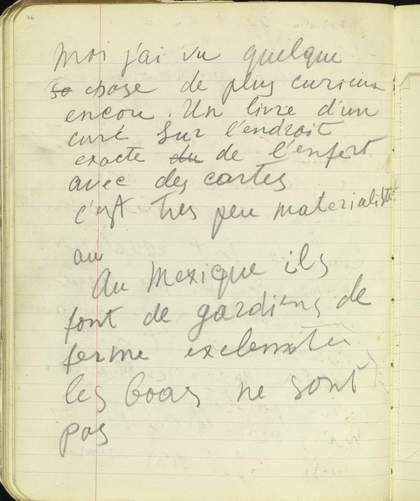 moi j'ai vu quelque
so chose de plus curieux
encou. Un livre d'un
curé sur l'endroit
exacte du de l'enfert
avec des cartes
c'est tres peu materialiste
au
Au Mexique ils
font de gardiens de
ferme
les boas ne sont
pas